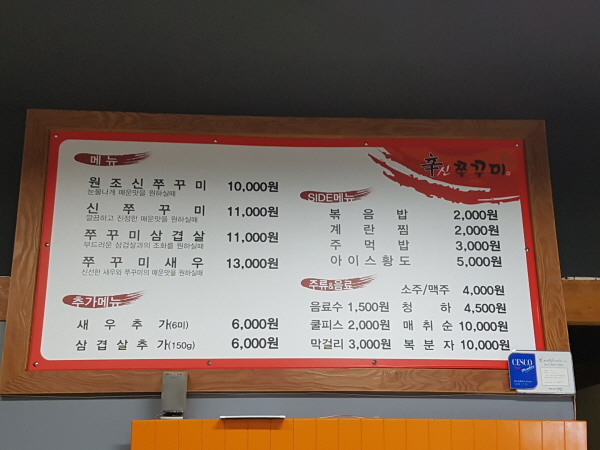 辛신 쭈꾸미
메뉴
원조신쭈꾸미 10,000원
눈물나게 매운맛을 원하실때
신쭈꾸미 11,000원
깔끔하고 진정한 매운맛을 원하실때
쭈꾸미삼겹살 11,000원
부드러운 삼겹살과의 조화를 원하실때
쭈꾸미새우 13,000원
신선한 새우와 쭈꾸미의 매운맛을 원하실때
추가메뉴
새우추가(6미) 6,000원
삼겹살추가(150g) 6,000원
SIDE메뉴
볶음밥 2,000원
계란찜 2,000원
주먹밥 3,000원
아이스황도 5,000원
주류&음료
소주/맥주 4,000원
음료수 1,500원 청하 4,500원
쿨피스 2,000원 매취순 10,000원
막걸리 3,000원 복분자 10,000원
CESCO